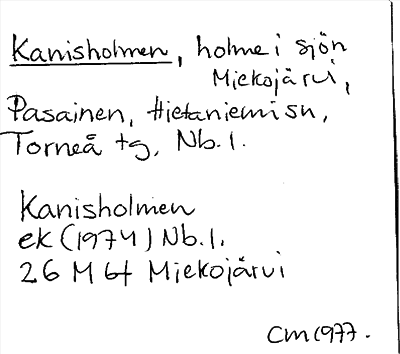 Kanisholmen, holme i sjön
Miekojärvi,
Pasainen, Hietaniemi sn,
Torneå tg, Nb. l.
Kanisholmen
ek (1974) Nb. l.
26 M 6f Miekojärvi
CM 1977.